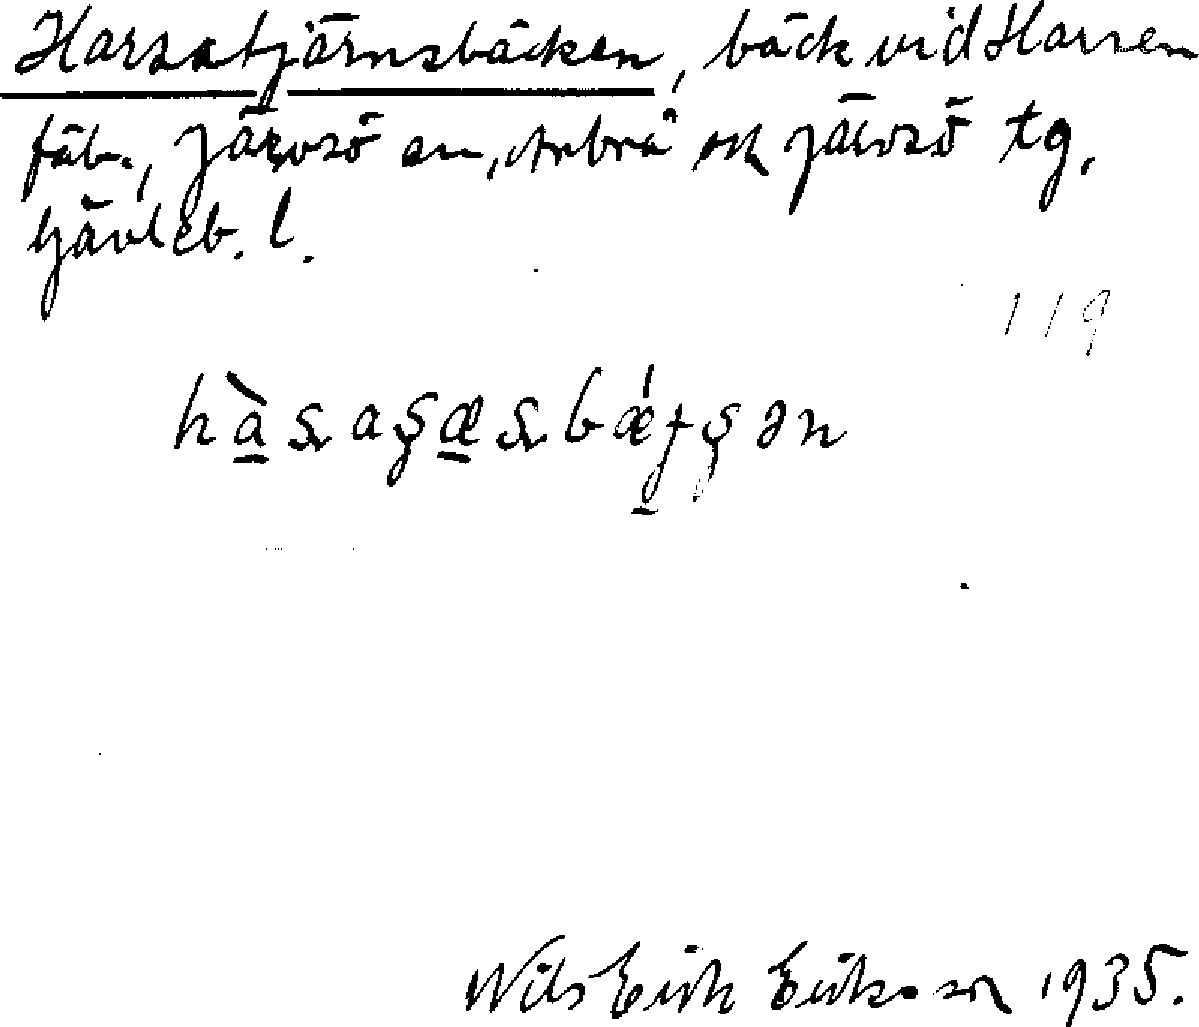 Harsatjärnsbäcken, bäck vid Harsen
fäb., Järvsö sn, Arbrå och Järvsö tg,
Gävleb. l.
119
Nils Erik Eriksson 1935.